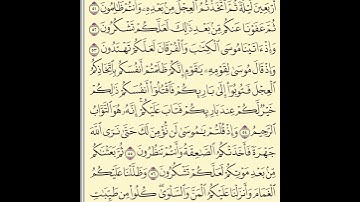 أَرْبَعِينَ لَيْلَةً ثُمَّ ٱتَّخَذْتُمُ ٱلْعِجْلَ مِنۢ بَعْدِهِۦ وَأَنتُمْ ظَٰلِمُونَ ٥١
ثُمَّ عَفَوْنَا عَنكُم مِّنۢ بَعْدِ ذَٰلِكَ لَعَلَّكُمْ تَشْكُرُونَ ٥٢
وَإِذْ ءَاتَيْنَا مُوسَى ٱلْكِتَٰبَ وَٱلْفُرْقَانَ لَعَلَّكُمْ تَهْتَدُونَ ٥٣
وَإِذْ قَالَ مُوسَىٰ لِقَوْمِهِۦ يَٰقَوْمِ إِنَّكُمْ ظَلَمْتُمْ أَنفُسَكُم بِٱتِّخَاذِكُمُ
ٱلْعِجْلَ فَتُوبُوٓا۟ إِلَىٰ بَارِئِكُمْ فَٱقْتُلُوٓا۟ أَنفُسَكُمْ ذَٰلِكُمْ
خَيْرٌ لَّكُمْ عِندَ بَارِئِكُمْ فَتَابَ عَلَيْكُمْ إِنَّهُۥ هُوَ ٱلتَّوَّابُ
ٱلرَّحِيمُ ٥٤ وَإِذْ قُلْتُمْ يَٰمُوسَىٰ لَن نُّؤْمِنَ لَكَ حَتَّىٰ نَرَى ٱللَّهَ
جَهْرَةً فَأَخَذَتْكُمُ ٱلصَّٰعِقَةُ وَأَنتُمْ تَنظُرُونَ ٥٥ ثُمَّ بَعَثْنَٰكُم
مِّنۢ بَعْدِ مَوْتِكُمْ لَعَلَّكُمْ تَشْكُرُونَ ٥٦ وَظَلَّلْنَا عَلَيْكُمُ
ٱلْغَمَامَ وَأَنزَلْنَا عَلَيْكُمُ ٱلْمَنَّ وَٱلسَّلْوَىٰ كُلُوا۟ مِن طَيِّبَٰتِ